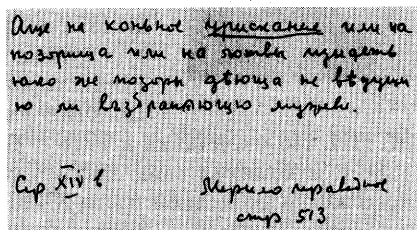 Аще на коньное урискание или на
позорища или на ловвы изидеть
яко же позоры дѣюща не вѣдущи
ю ли възбраняющю мужеви.
Сер XIV в Мерило праведное
стр 513